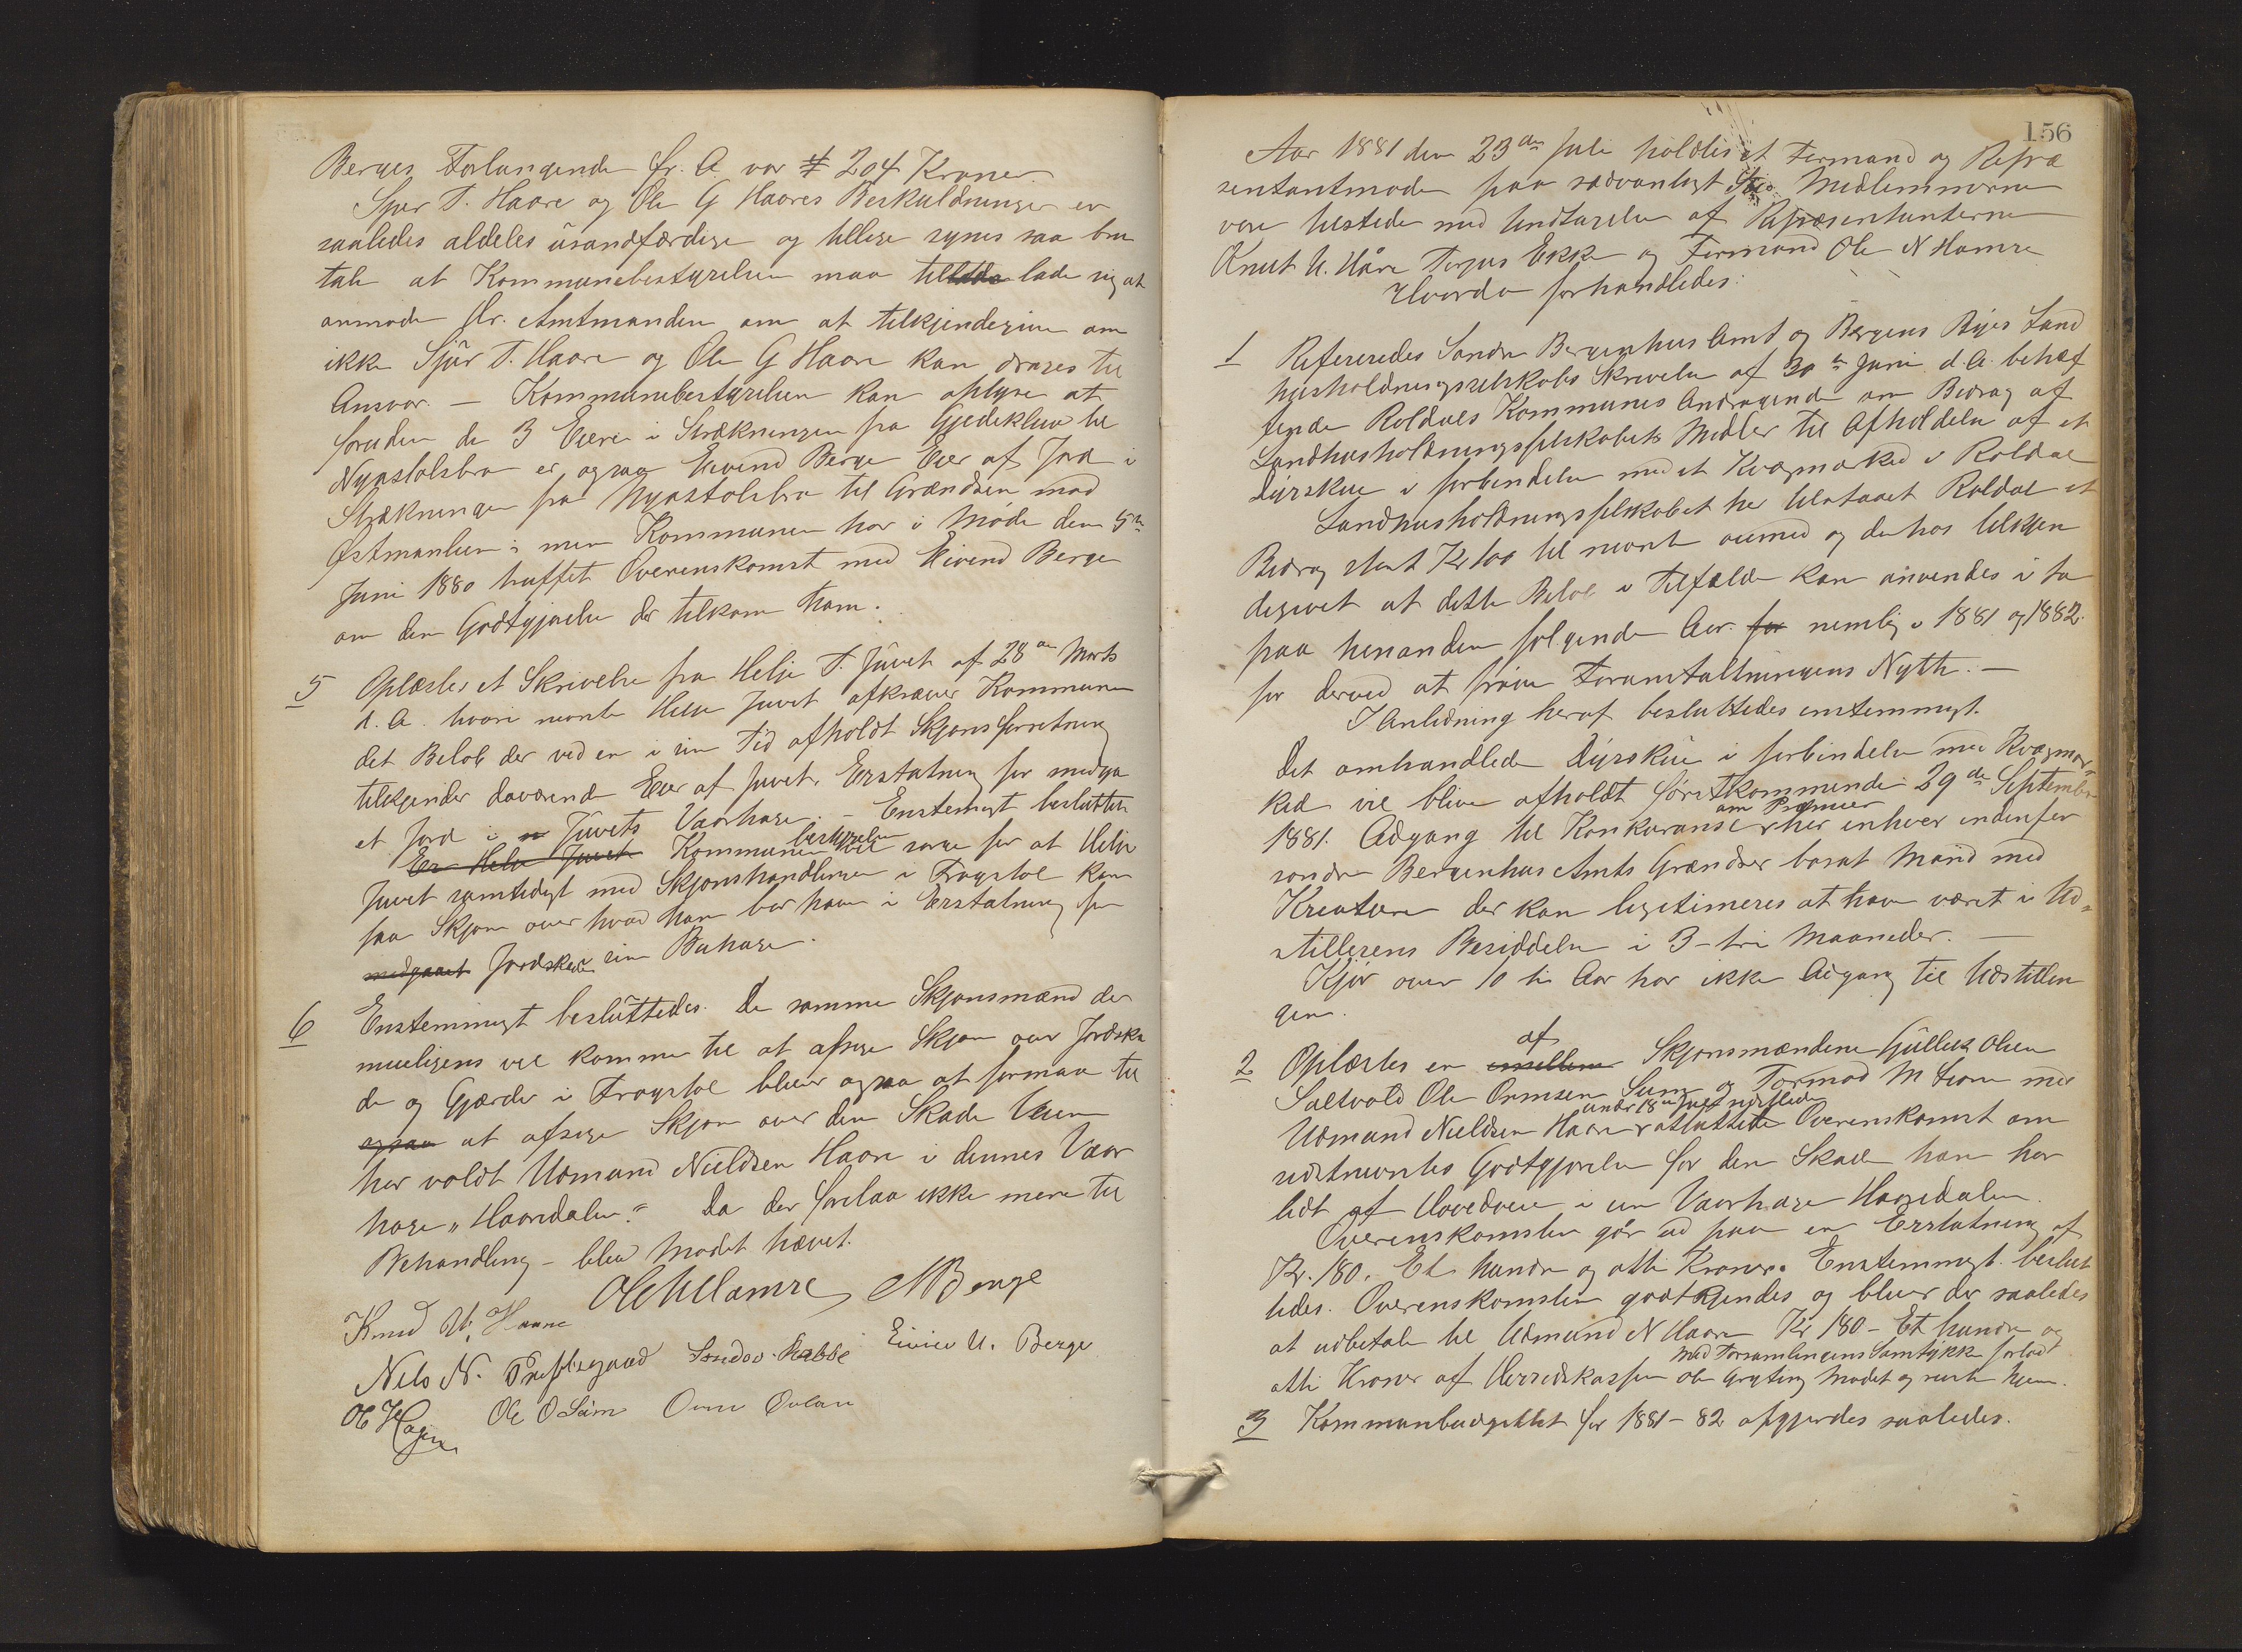 Berges Forlangende fr. A. var # 204 Kroner.
Sjur T. Haare og Ole G Haares Beskuldninger er
saaledes aldeles usandfærdige og tillige synes saa bru
tale at Kommunebestyrelsen maa tillade lade sig at
anmode Hr. Amtmanden om at tilkjendegive om
ikke Sjur T. Haare og Ole G Haare kan drages til
Ansvar. — Kommunebestyrelsen kan oplyse at
foruden de 3 Eiere i Strækningen fra Gjedeklev til
Nyastølsbro er ogsaa Eivind Berge Eier af Jord i
Strækningen fra Nyastolsbro til Grændsen mod
Østmanlien; men Kommunen har i Møde den 5te
Juni 1880 truffet Overenskomst med Eivend Berge
om den Godtgjørelse der tilkom ham.
5 Oplæstes et Skrivelse fra Helje T. Juvet af 28de Marts
d. A. hvori nevnte Helje Juvet afkræver Kommunen
det Beløb der ved en i sin Tid afholdt Skjønsforretning
tilkjendes daværende Eier af Juvet, Erstatning for medga
et Jord i Juvets Vaarhage. – Enstemigt besluttes
Er Helje Juvet Kommunen vil sørge for at Helje
bestyrelsen
Juvet samtidigt med Skjønshandlingen i Frøystøl kan
faa Skjøn over hvad han bør have i Erstatning for
medgaaet Jordskade i sin Buhage.
6 Enstemmigt besluttedes. De samme Skjønsmænd der
mueligens vil komme til at afsige Skjøn over Jordska
de og Gjærder i Frøystøl bliver ogsaa at formaa til
ogsaa at afsige Skjøn over den Skade Veien
har voldt Udmund Nieldsen Haare i dennes Vaar
hage „Haaredalen." Da der forelaa ikke mere til
Behandling – blev Mødet hævet.
Knud U. Haare Ole N Hamre N Berge
Nels N. Prestegaard Sondov Rabbe Eivind U. Berge
Ole O Seim
156
Aar 1881 den 23de Juli holdtes et Formand og Repræ
sentantmøde paa sædvanligt Sted. Medlemmerne
vare tilstede med Undtagelse af Repræsentanterne
Knut U. Håre Torjus Ekke og Formand Ole N Hamre
Hvorda forhandledes:
1 Refereredes Søndre Bergenhus Amt og Bergens Byes Land
husholdningsselskabs Skrivelse af 30te Juni d. A. behæf
tende Røldals Kommunes Andragende om Bidrag af
Landhusholdningsselskabets Midler til Afholdelse af et
Dyrskue i forbindelse med et Kvægmarked i Røldal
Landhusholdningsselskabet har tilstaaet Røldal et
Bidrag stort Kr 100 til nevnte øiemed og derhos tilkjen
degivet at dette Beløb i Tilfælde kan anvendes i to
paa henanden følgende Aar. for nemlig i 1881 og 1882
for derved at prøve Foranstaltningens Nytte. —
I Anledning heraf besluttedes enstemmigt.
Det omhandlede Dyrskue i forbindelse med Kvægmar=
ked vil blive afholdt førstkommende 29de September
1881. Adgang til Konkuranse har enhver indenfor
om Premier
søndre Bergenhus Amts Grændser bosat Mand med
Kreaturer der kan legitimeres at have været i Ud=
stillerens Besiddelse i 3 – tri Maaneder. —
Kjør over 10 ti Aar har ikke Adgang til Udstillin
gen.
af
2 Oplæstes en imellem Skjønsmændene Gullek Olsen
Saltvold Ole Ormsen Seim og Tormod M. med
under 18de Juli nestleden
Udmund Nieldsen Haare afsluttede Overenskomst om
sidstnevntes Godtgjørelse for den Skade han har
lidt af Hovedveien i sin Vaarhage Haaredalen.
Overenskomsten går ud paa en Erstatning af
Kr. 180. Et hundre og otti Kroner. Enstemmigt beslut
tedes. Overenskomsten godtkjendes og bliver der saaledes
at udbetale til Udmund N Haare Kr 180 – Et hundre og
med Forsamlingens Samtykke forlod
otti Kroner af Herredskassen Ole Grytting Mødet og reiste hjem.
3 Kommunbudgettet for 1881 – 82 opgjordes saaledes.